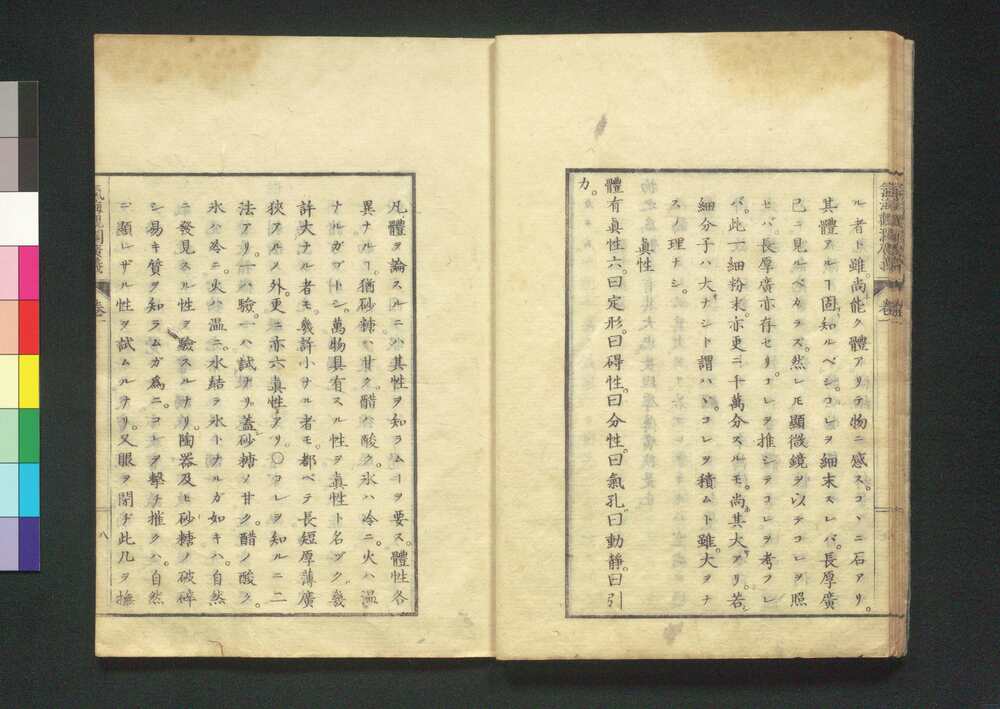 ル者ト雖。尚能ク體アリテ物ニ感ス。コヽニ石アリ。
其體アルヿ固知ルベシ。コレヲ細末スレバ。長厚廣
已ニ見ルベカラズ。然レモ顯微鏡ヲ以テコレヲ照
セバ。長厚廣亦存セリ。コレヲ推シテコレヲ考フレ
バ。此一細粉末。亦更ニ千萬分スルモ。尚其大アリ。若シ
細分子ハ大ナシト謂ハヾ。コレヲ積ムト雖。大ヲナ
スノ理ナシ。
眞性
體有眞性六。曰定形。曰碍性。曰分性。曰氣孔。曰動靜。曰引
力。
凡體ヲ論スルニハ。其性ヲ知ラムヿヲ要ス。體性各
異ナルヿ。猶砂糖ハ甘ク。醋ハ酸ク。氷ハ冷ニ。火ハ温
ナルガゴトシ。萬物具有スル性ヲ眞性ト名ヅク。幾
許大ナル者モ。幾許小ナル者モ。都ベテ長短厚薄廣
狹アルノ外。更ニ亦六眞性アリ。〇コレヲ知ルニ二
法アリ。一ハ驗。一ハ試ナリ。蓋砂糖ノ甘ク。醋ノ酸ク。
氷ハ冷ニ。火ハ温ニ。水結ヲ氷トナルガ如キハ。自然
ニ發見スル性ヲ驗スルナリ。陶器及ヒ砂糖ノ破碎
シ易キ質ヲ知ラムガ爲ニ。コレヲ擊チ摧クハ。自然
ニ顯レザル性ヲ試ムルナリ。又眼ヲ閉ヂ此几ヲ撫
八